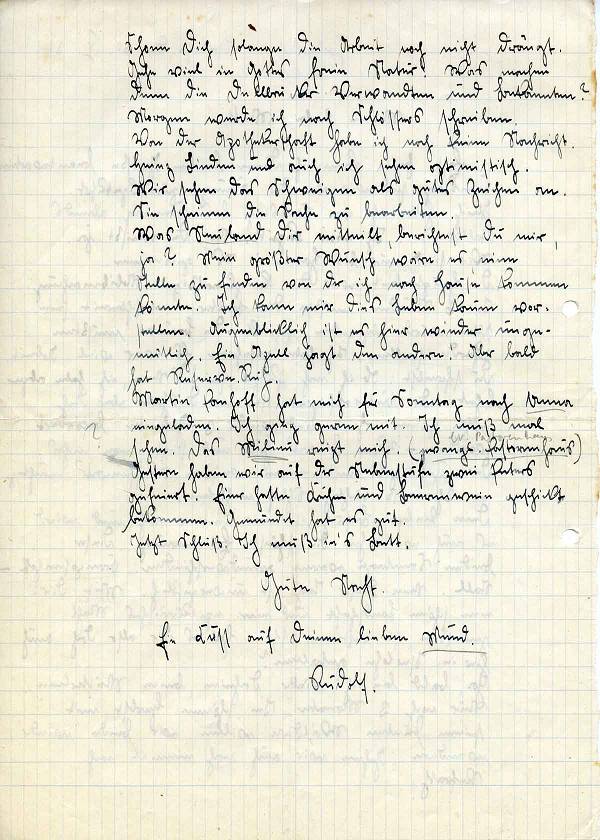 Schone Dich solange die Arbeit noch nicht drängt.
Gehe viel in Gottes freie Natur! Was machen
denn die Delbrücker Verwandten und Bekannten?
Morgen werde ich nach Schlössers schreiben.
Von der Apothekerschaft habe ich noch keine Nachricht.
Heinz Linden und auch ich sehen optimistisch.
Wir sehen das Schweigen als gutes Zeichen an.
Sie scheinen die Sache zu bearbeiten.
Was Neuland Dir mitteilt, berichtest Du mir,
ja? Mein größter Wunsch wäre es eine
Stelle zu finden von der ich nach Hause kommen
könnte. Ich kann mir das Leben kaum vor-
stellen. Augenblicklich ist es hier wieder unge-
mütlich. Ein Apell jagt den andern. Aber bald
hat Reserve Ruh.
Martin hat mich für Sonntag nach Unna
eingeladen. Ich ging gerne mit. Ich muß mal
sehen. Das Milieu reizt mich. (evangl. Pastorenhaus)
Gestern haben wir auf der Nebenstube zwei Peters
gefeiert. Einer hatte Kuchen und Beerenwein geschickt
bekommen. Gemundet hat es gut.
Jetzt Schluß. Ich muß in's Bett.
Gute Nacht.
Ein Kuss auf Deinen lieben Mund.
Rudolf.